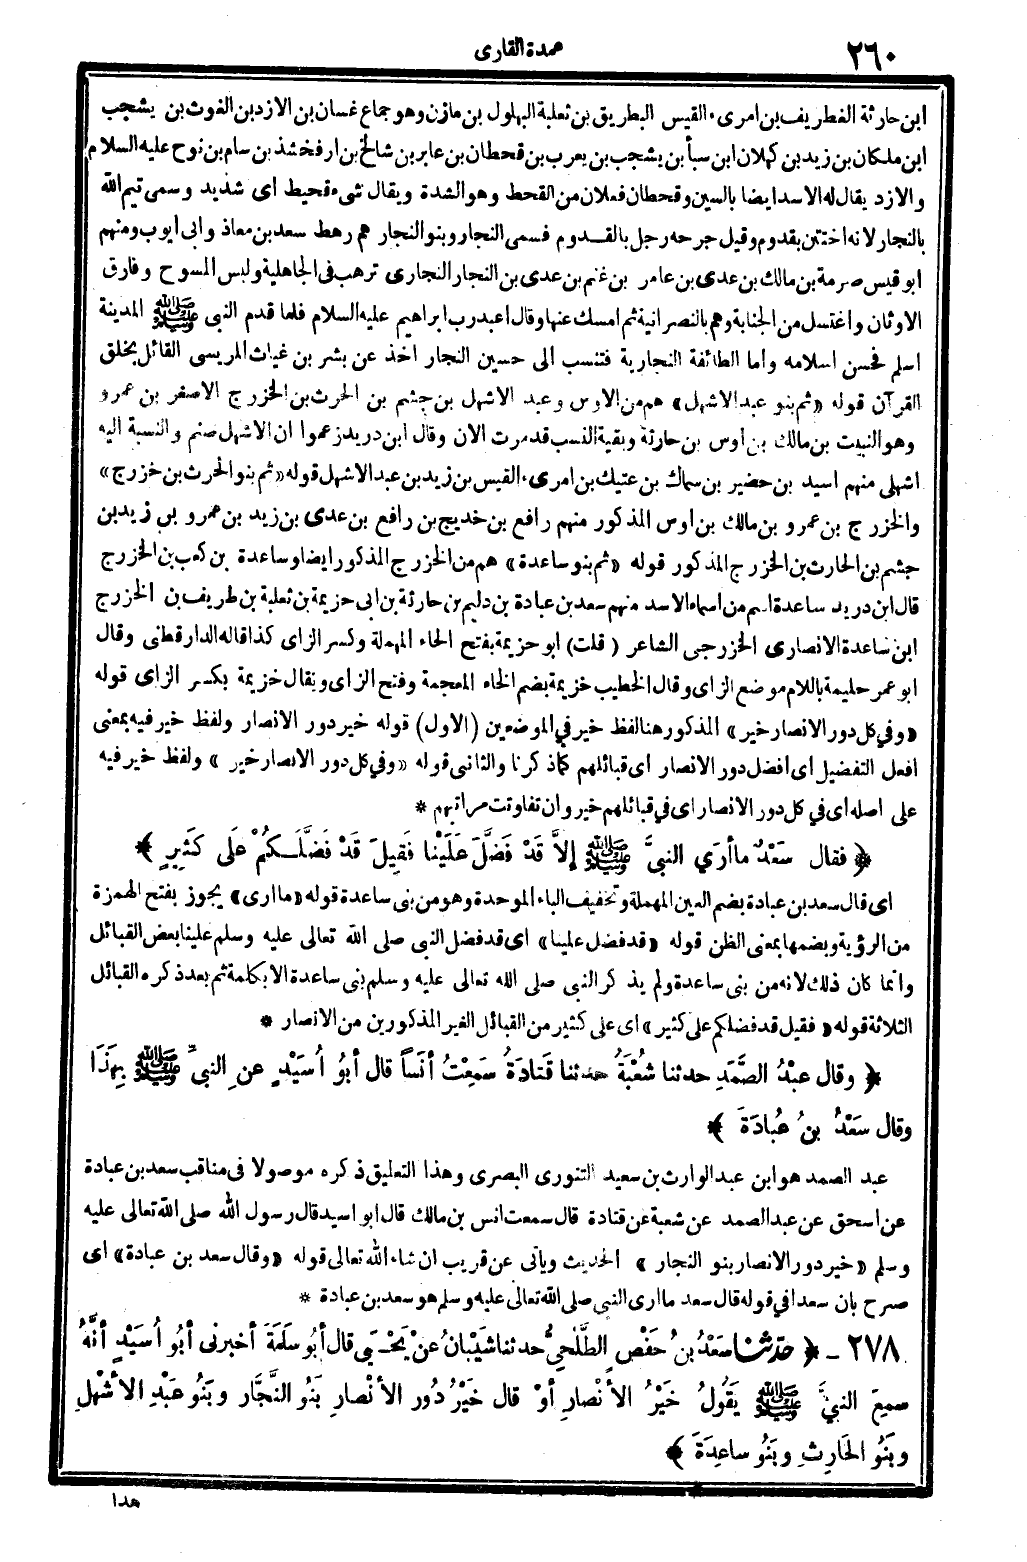 ٢٦٠
عمدة القارى
ابن حارثة الغطريف بن امرىء القيس البطريق بن ثعلبة البهلول بن مازن وهو جماع غسان بن الازد بن الغوث بن يشجب
ابن ملكان بن زيد بن كهلان ابن سبأ بن يشجب بن يعرب بن قحطان بن عابر بن شالخ بن ارفخشذ بن سام بن نوح عليه السلام
والازد يقال له الاسد ايضا بالسين وقحطان فعلان من القحط وهو الشدة ويقال شىء قحيط اى شديد وسمى تيم الله
بالنجار لانه اختتن بقدوم وقيل جرحه رجل بالقدوم فسمى النجار وبنو النجار هم رهط سعد بن معاذ وابى ايوب ومنهم
ابو قيس صرمة بن مالك بن عدى بن عامر بن غنم بن عدى بن النجار النجارى ترهب فى الجاهلية ولبس المسوح وفارق
الاوثان واغتسل من الجنابة وهم بالنصرانية ثم امسك عنها وقال اعبد رب ابراهيم عليه السلام فلما قدم النبى ﷺ المدينة
اسلم فحسن اسلامه واما الطائفة النجارية فتنسب الى حسين النجار اخذ عن بشر بن غياث المريسى القائل بخلق
القرآن قوله «ثم بنو عبد الاشهل» هم من الاوس وعبد الاشهل بن جشم بن الحرث بن الخزرج الاصغر بن عمرو
وهو النبيت بن مالك بن اوس بن حارثة وبقية النسب قد مرت الان وقال ابن دريد زعموا ان الاشهل صنم والنسبة اليه
اشهلى منهم اسيد بن حضير بن سماك بن عتيك بن امرىء القيس بن زيد بن عبد الاشهل قوله «ثم بنو الحرث بن خزرج»
والخزرج بن عمرو بن مالك بن اوس المذكور منهم رافع بن خديج بن رافع بن عدى بن زيد بن عمرو بن زيد بن
جشم بن الحارث بن الخزرج المذكور قوله «ثم بنو ساعدة» هم من الخزرج المذكور ايضا وساعدة بن كعب بن الخزرج
قال ابن دريد ساعدة اسم من اسماء الاسد منهم سعد بن عبادة بن دليم بن حارثة بن ابى حزيمة بن ثعلبة بن طريف بن الخزرج
ابن ساعدة الانصارى الخزرجى الشاعر (قلت) ابو حزيمة بفتح الحاء المهملة وكسر الزاى كذا قاله الدارقطنى وقال
ابو عمر حليمة باللام موضع الزاى وقال الخطيب خزيمة بضم الخاء المعجمة وفتح الزاى ويقال خزيمة بكسر الزاى قوله
«وفى كل دور الانصار خير» المذكور هنا لفظ خير فى الموضعين (الاول) قوله خير دور الانصار ولفظ خير فيه بمعنى
افعل التفضيل اى افضل دور الانصار اى قبائلهم كما ذكرنا والثانى قوله «وفى كل دور الانصار خير» ولفظ خير فيه
على اصله اى فى كل دور الانصار اى فى قبائلهم خير وان تفاوتت مراتبهم *
﴿ فقال سَعْدٌ ما أَرَى النبىَّ ﷺ إِلاَّ قَدْ فَضَّلَ عَلَيْنا فَقِيلَ قَدْ فَضَّلَكُمْ عَلَى كَثِيرٍ ﴾
اى قال سعد بن عبادة بضم العين المهملة وتخفيف الباء الموحدة وهو من بنى ساعدة قوله «ما ارى» يجوز بفتح الهمزة
من الرؤية وبضمها بمعنى الظن قوله «قد فضل علينا» اى قد فضل النبى صلى الله تعالى عليه وسلم علينا بعض القبائل
وانما كان ذلك لانه من بنى ساعدة ولم يذكر النبى صلى الله تعالى عليه وسلم بنى ساعدة الا بكلمة ثم بعد ذكره القبائل
الثلاثة قوله «فقيل قد فضلكم على كثير» اى على كثير من القبائل الغير المذكورين من الانصار *
﴿ وقال عبْدُ الصَّمَدِ حدثنا شُعْبَةُ حدثنا قَتادَةُ سَمِعْتُ أنَساً قال أبُو أُسَيْدٍ عنِ النبىِّ ﷺ بِهَذَا
وقال سَعْدُ بنُ عُبادَةَ ﴾
عبد الصمد هو ابن عبد الوارث بن سعيد التنورى البصرى وهذا التعليق ذكره موصولا فى مناقب سعد بن عبادة
عن اسحق عن عبد الصمد عن شعبة عن قتادة قال سمعت انس بن مالك قال ابو اسيد قال رسول الله صلى الله تعالى عليه
وسلم «خير دور الانصار بنو النجار» الحديث ويأتى عن قريب ان شاء الله تعالى قوله «وقال سعد بن عبادة» اى
صرح بان سعدا فى قوله قال سعد ما ارى النبى صلى الله تعالى عليه وسلم هو سعد بن عبادة *
٢٧٨ - ﴿ حدّثنا سَعْدُ بنُ حَفْصٍ الطَّلْحِىُّ حدثنا شَيْبَانُ عنْ يَحْيَى قال أبُو سَلَمَةَ أخبرنى أبُو أُسَيْدٍ أنَّهُ
سمِعَ النبىَّ ﷺ يَقُولُ خَيْرُ الأنْصارِ أوْ قال خَيْرُ دُورِ الأنْصارِ بَنُو النَّجَّارِ وبَنُو عَبْدِ الأشْهَلِ
وبَنُو الحَارِثِ وبَنُو ساعِدَةَ ﴾
هذا